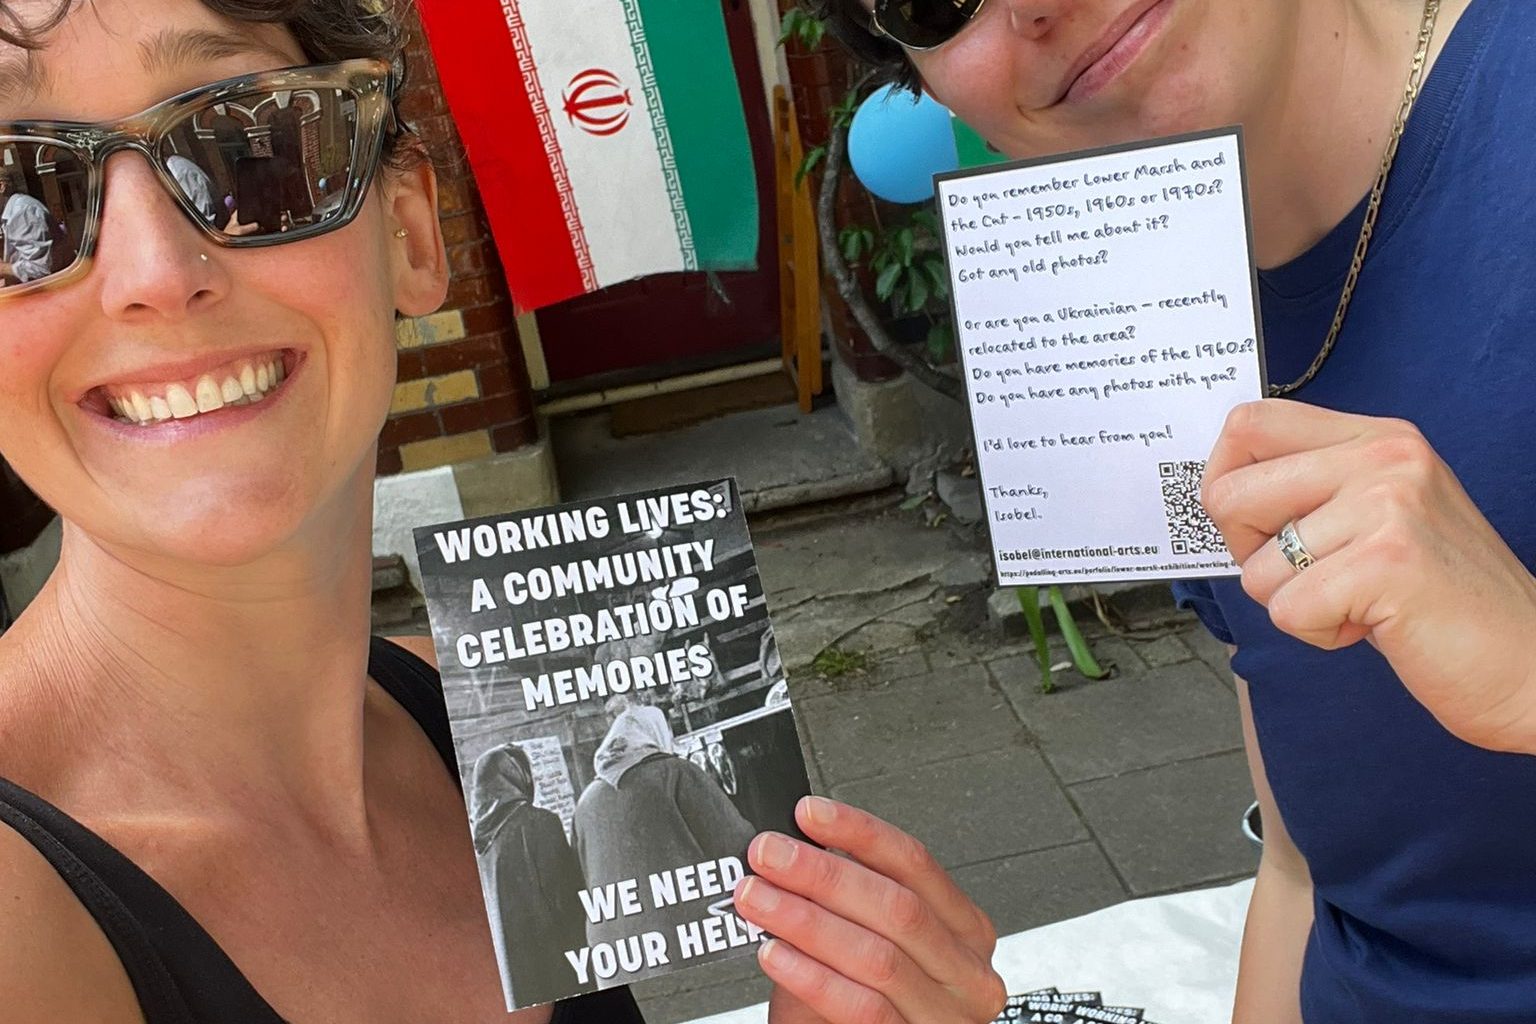 WORKING LIVES:
A COMMUNITY
CELEBRATION OF
MEMORIES
WE NEED
YOUR HELP
Do you remember Lower Marsh and
the Cut – 1950s, 1960s or 1970s?
Would you tell me about it?
Got any old photos?
Or are you a Ukrainian – recently
relocated to the area?
Do you have memories of the 1960s?
Do you have any photos with you?
I'd love to hear from you!
Thanks,
Isobel.
isobel@international-arts.eu
WORKING LIVES: